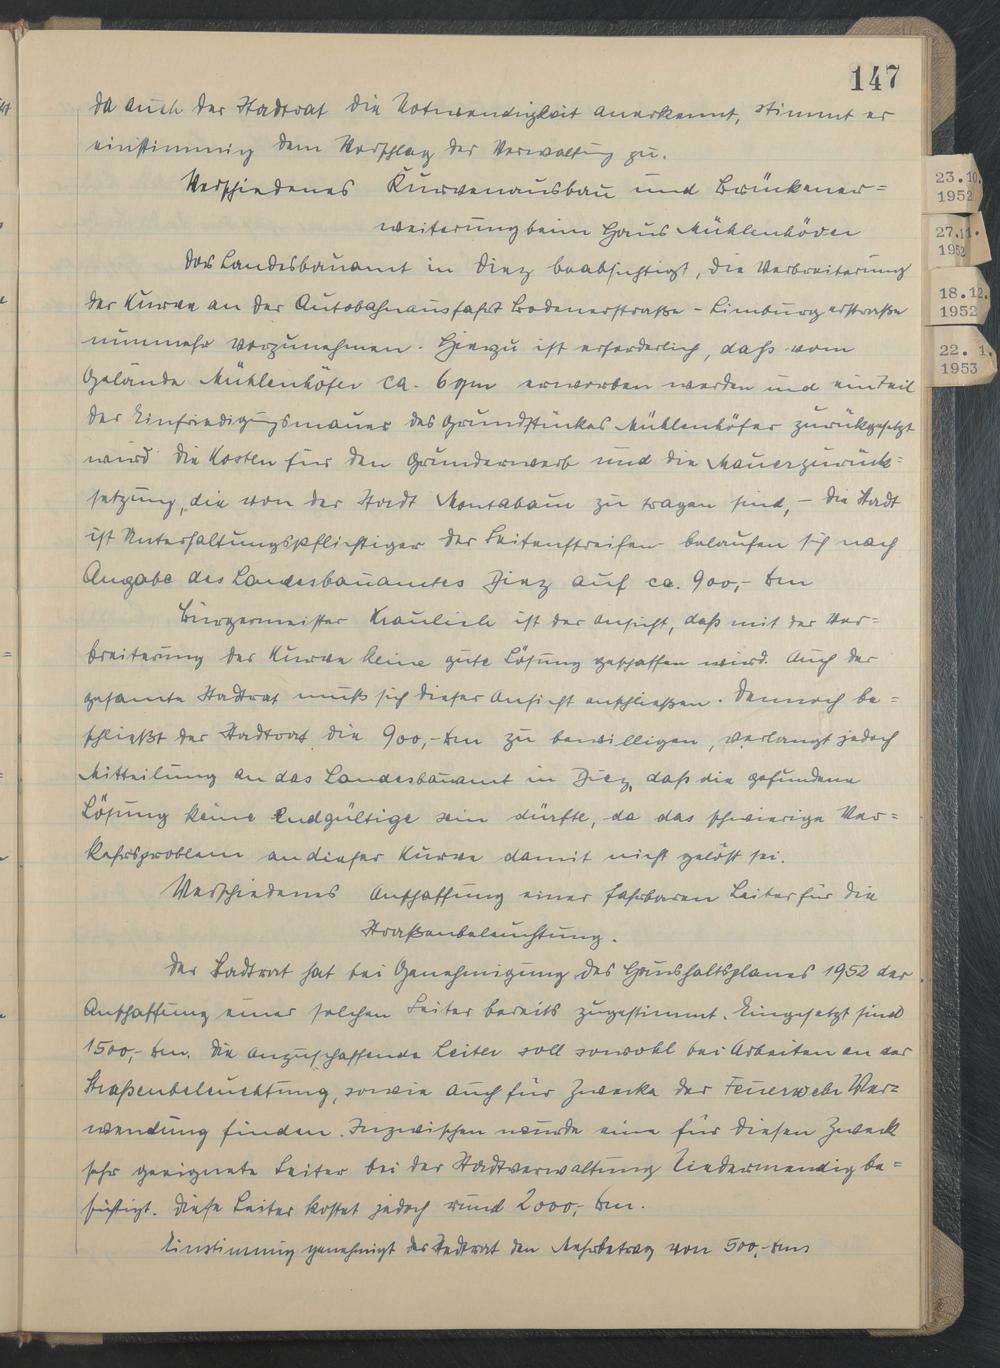 147
da auch der Stadtrat die Notwendigkeit anerkennt, stimmt er
einstimmig dem Vorschlag der Verwaltung zu.
Verschiedenes Kurvenausbau und Brückener=
weiterung beim Haus Mühlenhöver
Das Landesbauamt in Diez beabsichtigt, die Verbreiterung
der Kurve an der Autobahnausfahrt Bodenerstraße - Limburgerstraße
nunmehr vorzunehmen. Hierzu ist erforderlich, daß vom
Gelände Mühlenhöfer ca. 6 qm erworben werden und ein Teil
der Einfriedigungsmauer des Grundstückes Mühlenhöfer zurückgesetzt
wird Die Kosten für den Grunderwerb und die Mauerzurück=
setzung, die von der Stadt Montabaur zu tragen sind, - die Stadt
ist Unterhaltungspflichtiger der Seitenstreifen belaufen sich nach
Angabe des Landesbauamtes Diez auf ca. 900,- Dm
Bürgermeister Kraulich ist der Ansicht, daß mit der Ver=
breiterung der Kurve keine gute Lösung geschaffen wird. Auch der
gesamte Stadtrat muß sich dieser Ansicht anschließen. Dennoch be=
schließt der Stadtrat die 900,- Dm zu bewilligen, verlangt jedoch
Mitteilung an das Landesbauamt in Diez, daß die gefundene
Lösung keine Endgültige sein dürfte, da das schwierige Ver=
kehrsproblem an dieser Kurve damit nicht gelöst sei.
Verschiedenes Anschaffung einer fahrbaren Leiter für die
Straßenbeleuchtung.
Der Stadtrat hat bei Genehmigung des Haushaltsplanes 1952 der
Anschaffung einer solchen Leiter bereits zugestimmt. Eingesetzt sind
1500,- Dm. Die anzuschaffende Leiter soll sowohl bei Arbeiten an der
Straßenbeleuchtung, sowie auch für Zwecke der Feuerwehr Ver=
wendung finden. Inzwischen wurde eine für diesen Zweck
sehr geeignete Leiter bei der Stadtverwaltung Niedermendig be=
sichtigt. Diese Leiter kostet jedoch rund 2000,- Dm.
Einstimmig genehmigt der Stadtrat den Mehrbetrag von 500,- Dm
23.10.
1952
27.11.
1952
18.12.
1952
22. 1.
1953